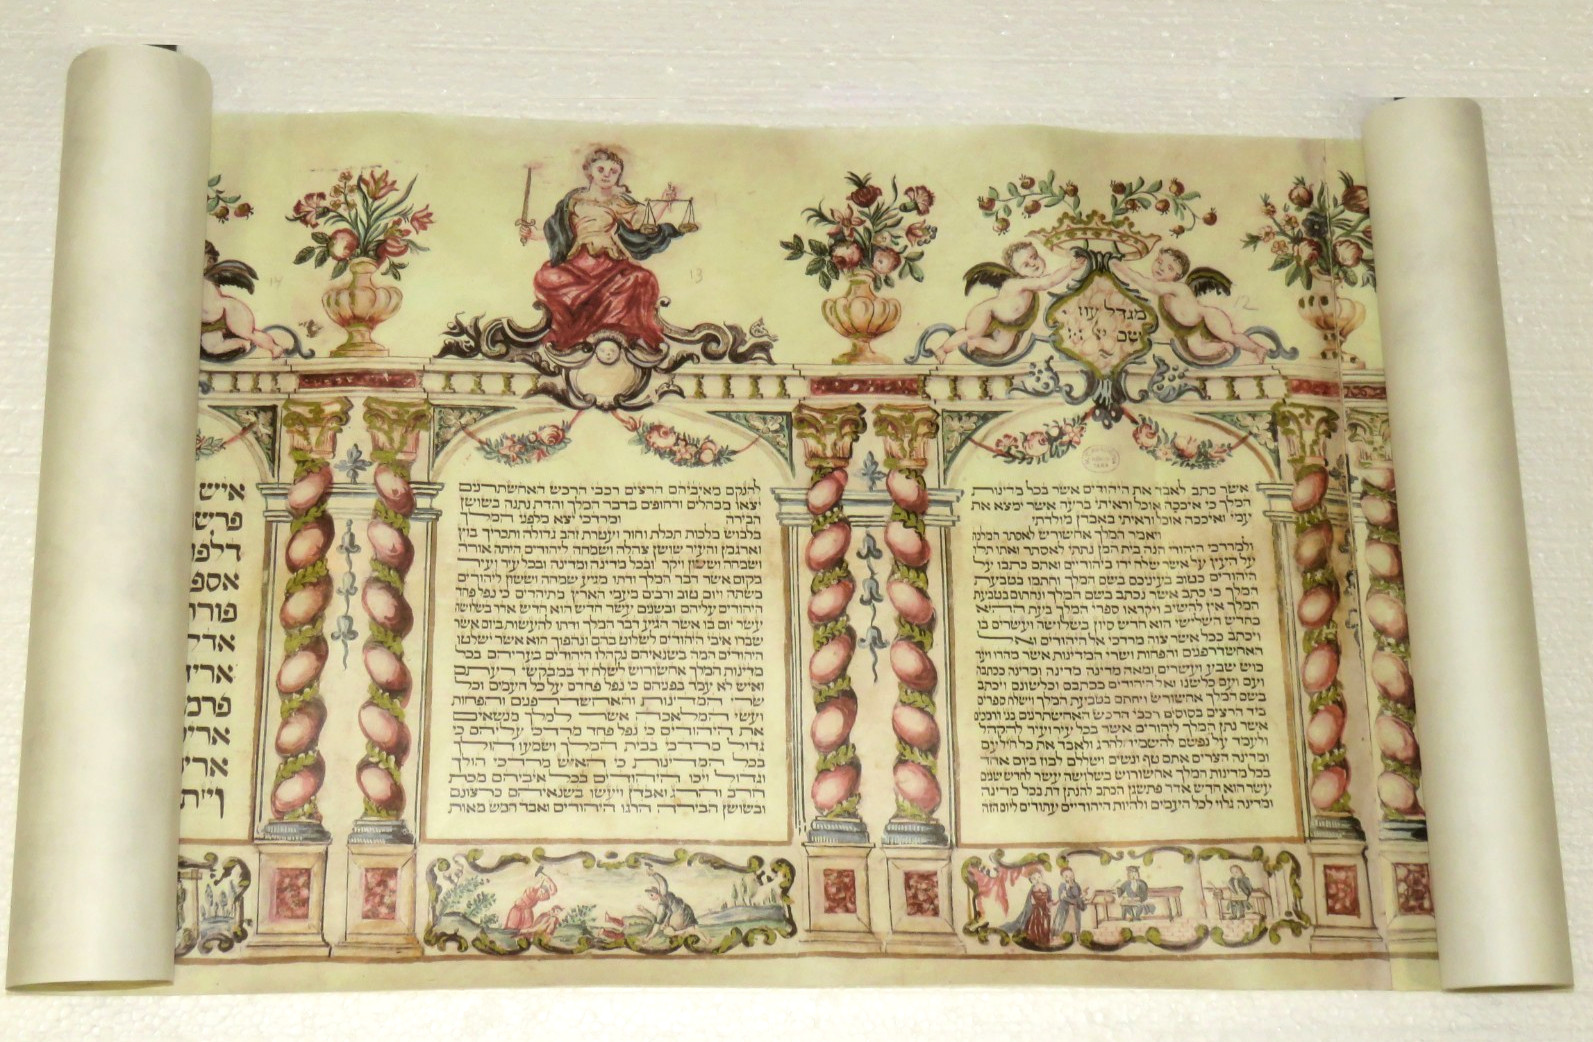 מגדל עוז
שם
אשר כתב לאבד את היהודים אשר בכל מדינות
המלך כי איככה אוכל וראיתי ברעה אשר ימצא את
עמי ואיככה אוכל וראיתי באבדן מולדתי
ויאמר המלך אחשורש לאסתר המלכה
ולמרדכי היהודי הנה בית המן נתתי לאסתר ואתו תלו
על העץ על אשר שלח ידו ביהודיים ואתם כתבו על
היהודים כטוב בעיניכם בשם המלך וחתמו בטבעת
המלך כי כתב אשר נכתב בשם המלך ונחתום בטבעת
המלך אין להשיב ויקראו ספרי המלך בעת ההיא
בחדש השלישי הוא חדש סיון בשלושה ועשרים בו
ויכתב ככל אשר צוה מרדכי אל היהודים ואל
האחשדרפנים והפחות ושרי המדינות אשר מהדו ועד
כוש שבע ועשרים ומאה מדינה מדינה ומדינה ככתבה
ועם ועם כלשנו ואל היהודים ככתבם וכלשונם ויכתב
בשם המלך אחשורש ויחתם בטבעת המלך וישלח ספרים
ביד הרצים בסוסים רכבי הרכש האחשתרנים בני הרמכים
אשר נתן המלך ליהודים אשר בכל עיר ועיר להקהל
ולעמד על נפשם להשמיד ולהרג ולאבד את כל חיל עם
ומדינה הצרים אתם טף ונשים ושללם לבוז ביום אחד
בכל מדינות המלך אחשורוש בשלושה עשר לחדש שנים
עשר הוא חדש אדר פתשגן הכתב להנתן דת בכל מדינה
ומדינה גלוי לכל העמים ולהיות היהודיים עתודים ליום הזה
12
13
להנקם מאיביהם הרצים רכבי הרכש האחשתרנים
יצאו מבהלים ודחופים בדבר המלך והדת נתנה בשושן
הבירה ומרדכי יצא מלפני המלך
בלבוש מלכות תכלת וחור ועטרת זהב גדולה ותכריך בוץ
וארגמן והעיר שושן צהלה ושמחה ליהודים היתה אורה
ושמחה וששון ויקר ובכל מדינה ומדינה ובכל עיר ועיר
מקום אשר דבר המלך ודתו מגיע שמחה וששון ליהודים
משתה ויום טוב ורבים מעמי הארץ מתיהדים כי נפל פחד
היהודים עליהם ובשנים עשר חדש הוא חדש אדר בשלושה
עשר יום בו אשר הגיע דבר המלך ודתו להעשות ביום אשר
שברו איבי היהודים לשלוט בהם ונהפוך הוא אשר ישלטו
היהודים המה בשנאיהם נקהלו היהודים בעריהם בכל
מדינות המלך אחשורוש לשלח יד במבקשי רעתם
ואיש לא עמד בפניהם כי נפל פחדם על כל העמים וכל
שרי המדינות והאחשדרפנים והפחות
ועשי המלאכה אשר למלך מנשאים
את היהודים כי נפל פחד מרדכי עליהם כי
גדול מרדכי בבית המלך ושמעו הולך
בכל המדינות כי האיש מרדכי הולך
וגדול ויכו היהודים בכל איביהם מכת
חרב והרג ואבדן ויעשו בשנאיהם כרצונם
ובשושן הבירה הרגו היהודים ואבד חמש מאות
14
איש
פרש
דלפו
אספ
פורו
אדל
אריד
פרמ
אריס
אריד
ויז